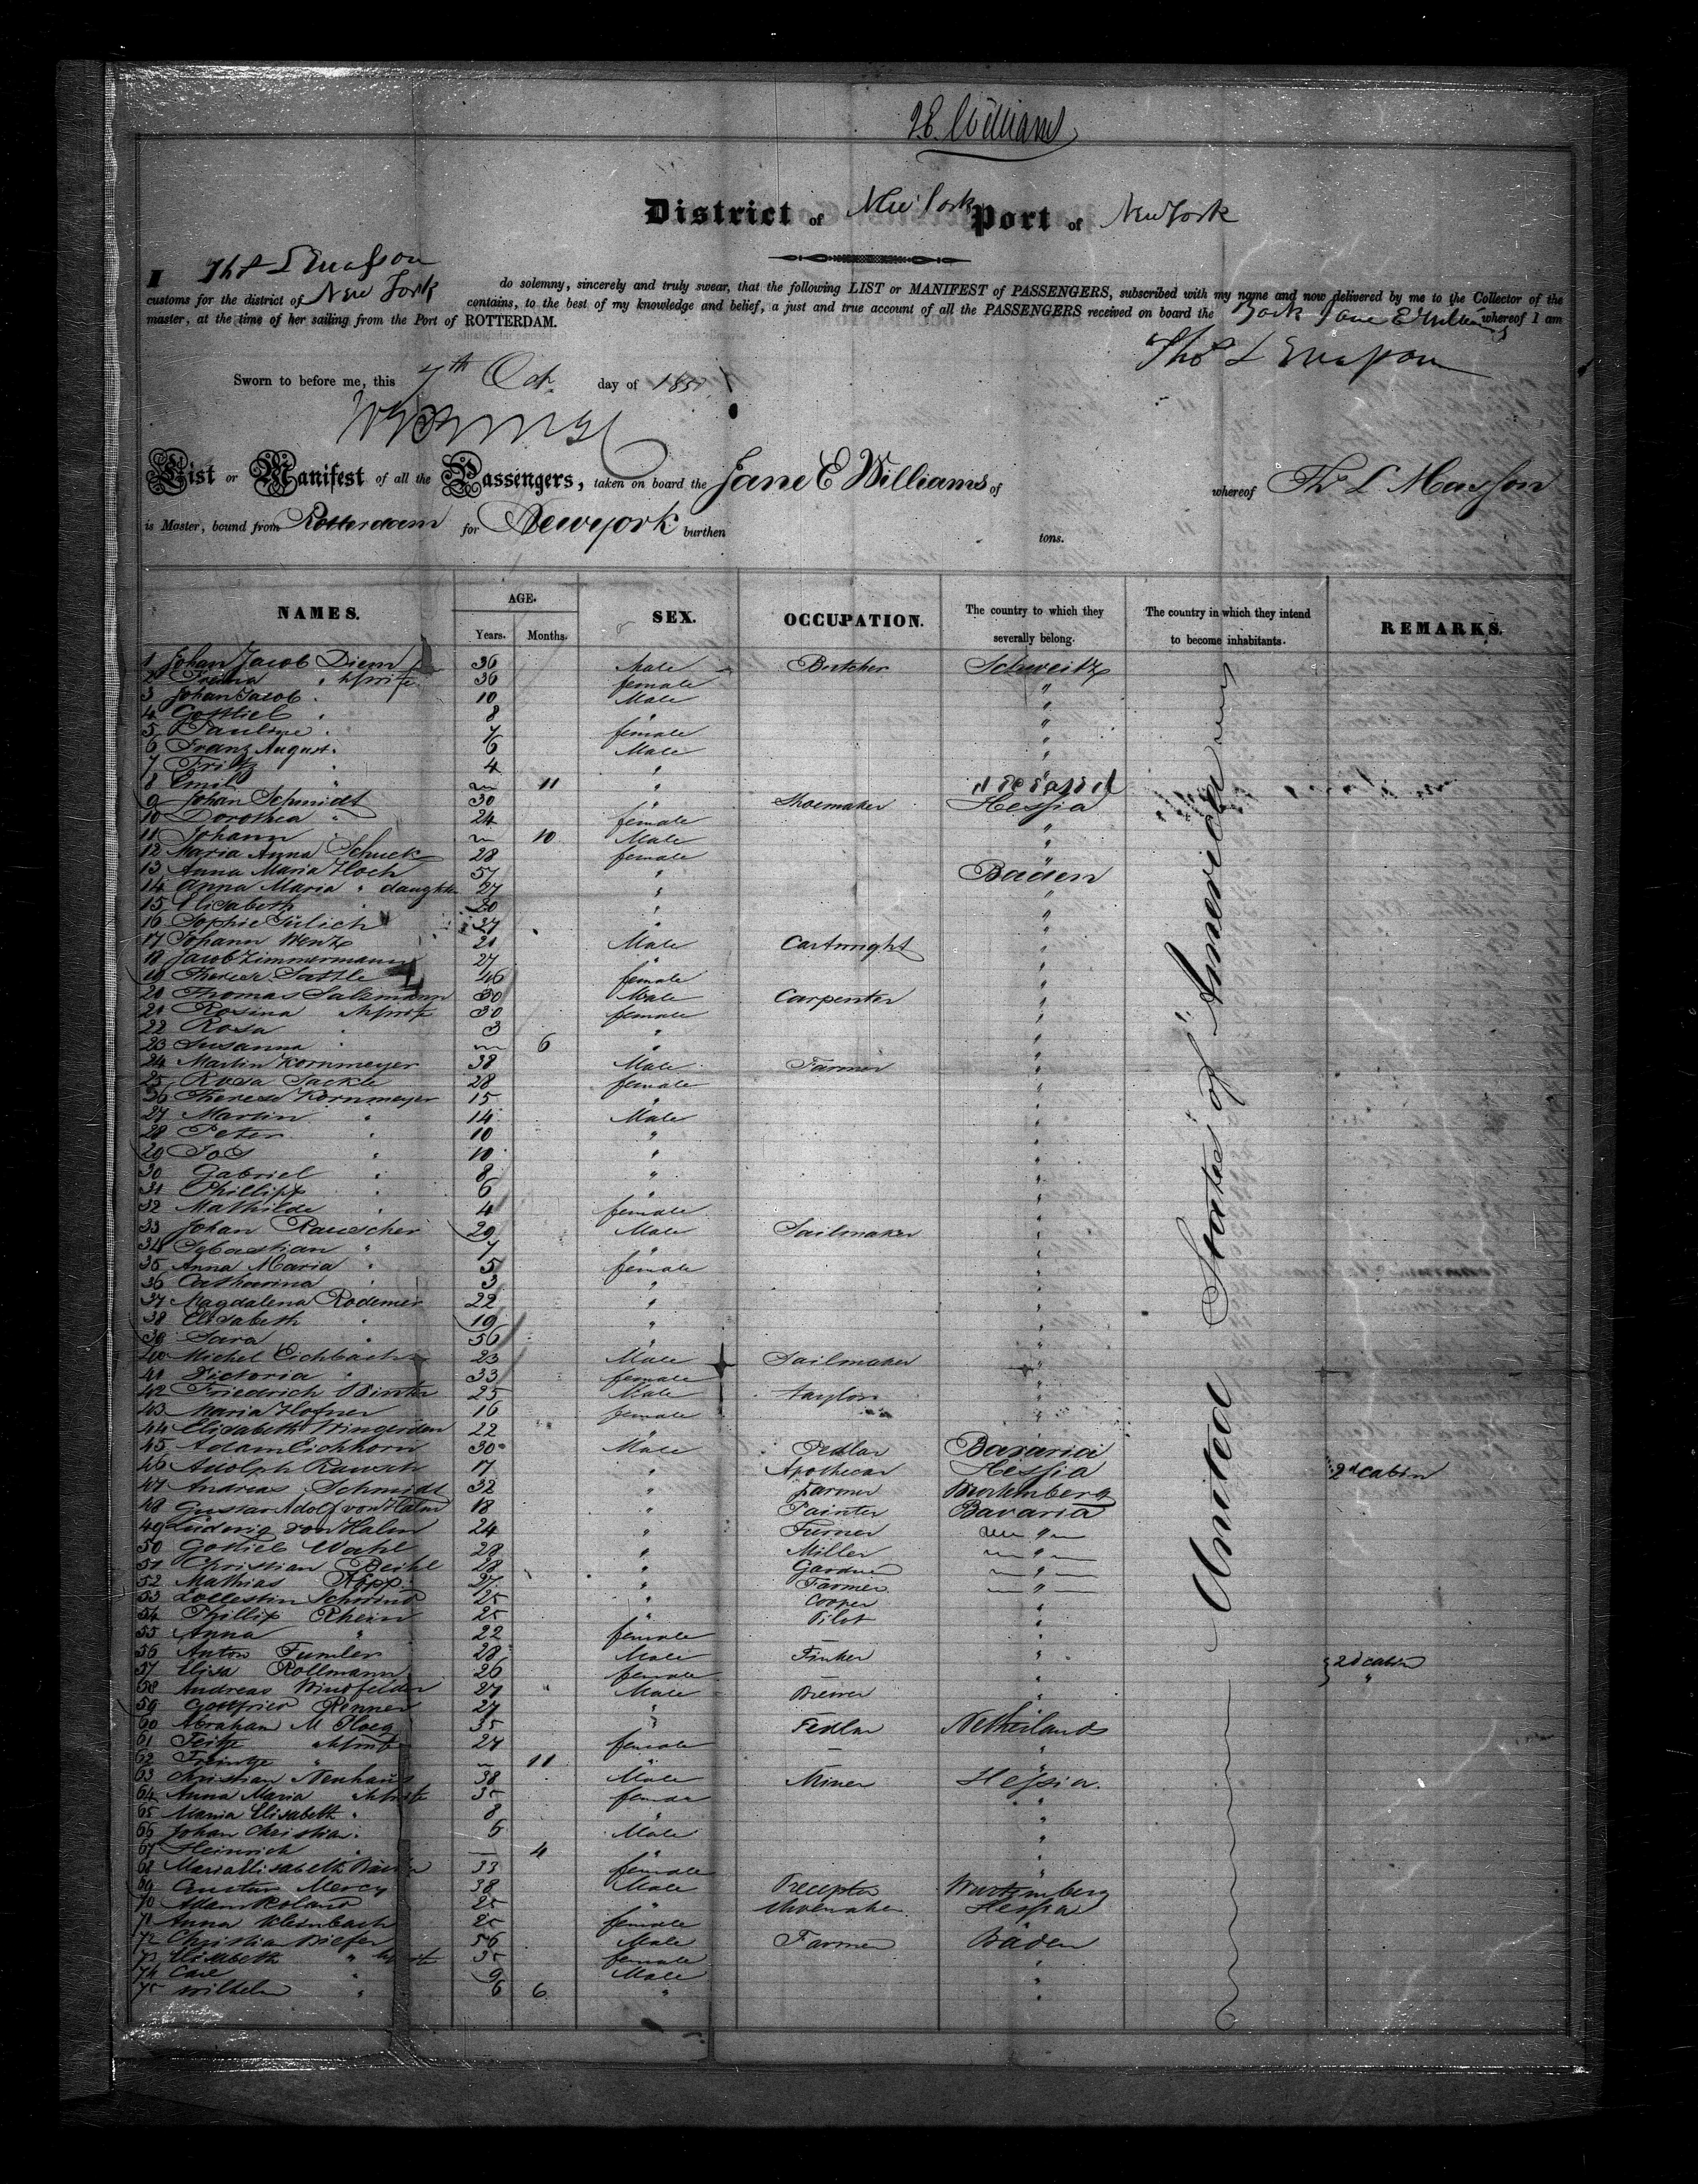 J E. Williams
District of New York Port of New York
I Thos L Masson do solemny, sincerely and truly swear, that the following LIST or MANIFEST of PASSENGERS, subscribed with my name and now delivered by me to the Collector of the
customs for the district of New York contains, to the best of my knowledge and belief, a just and true account of all the PASSENGERS received on board the Bark Jane E Williams whereof I am
master, at the time of her sailing from the Port of ROTTERDAM.
Thos L Masson
Sworn to before me, this 7th Oct day of 185
List or Manifest of all the Passengers, taken on board the Jane E Williams of whereof Th L Masson
is Master, bound from Rotterdam for Newyork burthen tons.
NAMES. AGE. Years. Months. SEX. OCCUPATION. The country to which they severally belong. The country in which they intend to become inhabitants. REMARKS.
United States of America
1 Johan Jacob Diem 36 Male Butcher Schweitz
2 " 36 female "
3 Johan Jacob " 10 Male "
4 Gottlieb " 8 " "
5 Pauline " 7 female "
6 Franz August " 6 Male "
7 Fritz " 4 " "
8 Emil " 11 "
9 Johan Schmidt 30 " Shoemaker Hessia
10 Dorothea " 24 female "
11 Johann " 10 Male "
12 Maria Anna Schuck 28 female "
13 Anna Maria Hoch 57 " Baden
14 Anna Maria " daughter 27 " "
15 Elisabeth " 20 " "
16 Sophie Jülich 37 " "
17 Johann Wentz 21 Male Cartwright "
18 Jacob Zimmermann 27 " "
19 Therese Sattle 46 female "
20 Thomas Salzmann 30 Male Carpenter "
21 Rosina " 30 female "
22 Rosa " 3 " "
23 Susanna " 6 " "
24 Martin Kornmeyer 38 Male Farmer "
25 Rosa Jackle 28 female "
26 Therese Kornmeyer 15 " "
27 Martin " 14 Male "
28 Peter " 10 " "
29 Jos " 10 " "
30 Gabriel " 8 " "
31 Phillipp " 6 " "
32 Mathilde " 4 female "
33 Johan Rauscher 29 Male Sailmaker "
34 Sebastian " 7 " "
35 Anna Maria " 5 female "
36 Catharina " 3 " "
37 Magdalena Rodemer 22 " "
38 Elisabeth " 19 " "
39 Sara " 56 " "
40 Michel Eichbach 23 Male Sailmaker "
41 Victoria " 33 female "
42 Friedrich 25 Male taylor "
43 Maria Hofner 16 female "
44 Elisabeth Wingerden 22 " "
45 Adam Eichhorn 30 Male Pedlar Bavaria
46 Adolph Rausch 17 " Apothecar Hessia 2d cabin
47 Andreas Schmidt 32 " Farmer Wurtemberg
48 Gustav Adolf von Halm 18 " Painter Bavaria
49 Ludwig von Halm 24 " Turner "
50 Gottlieb Wahl 28 " Miller "
51 Christian Beihl 28 " Gardner "
52 Mathias Kopp 37 " Farmer "
53 Zollestin Schwind 25 " Cooper "
54 Phillip Rhein 25 " Pilot "
55 Anna " 22 female "
56 Anton Fumler 28 Male "
57 Elisa Rollmann 26 female " 2d cabin
58 Andreas Windfelder 27 Male Brewer " "
59 Gottfried Renner 27 " "
60 Abraham M Ploeg 35 " Pedlar Netherlands
61 " 27 female "
62 " 11 " "
63 Christian Neuhaus 38 Male Miner Hessia.
64 Anna Maria " 35 female "
65 Maria Elisabeth " 8 " "
66 Johan Christian " 6 Male "
67 Heinrich " 4 " "
68 Maria Elisabeth 33 female "
69 Gustav Mercy 38 Male Preceptor Wurtemberg
70 Adam Roland 25 " Shoemaker Hessia
71 Anna Kleinbach 25 female "
72 Christian Biefer 56 Male Farmer Baden
73 Elisabeth " 35 female "
74 Carl " 9 Male "
75 Wilhelm " 6 6 " "